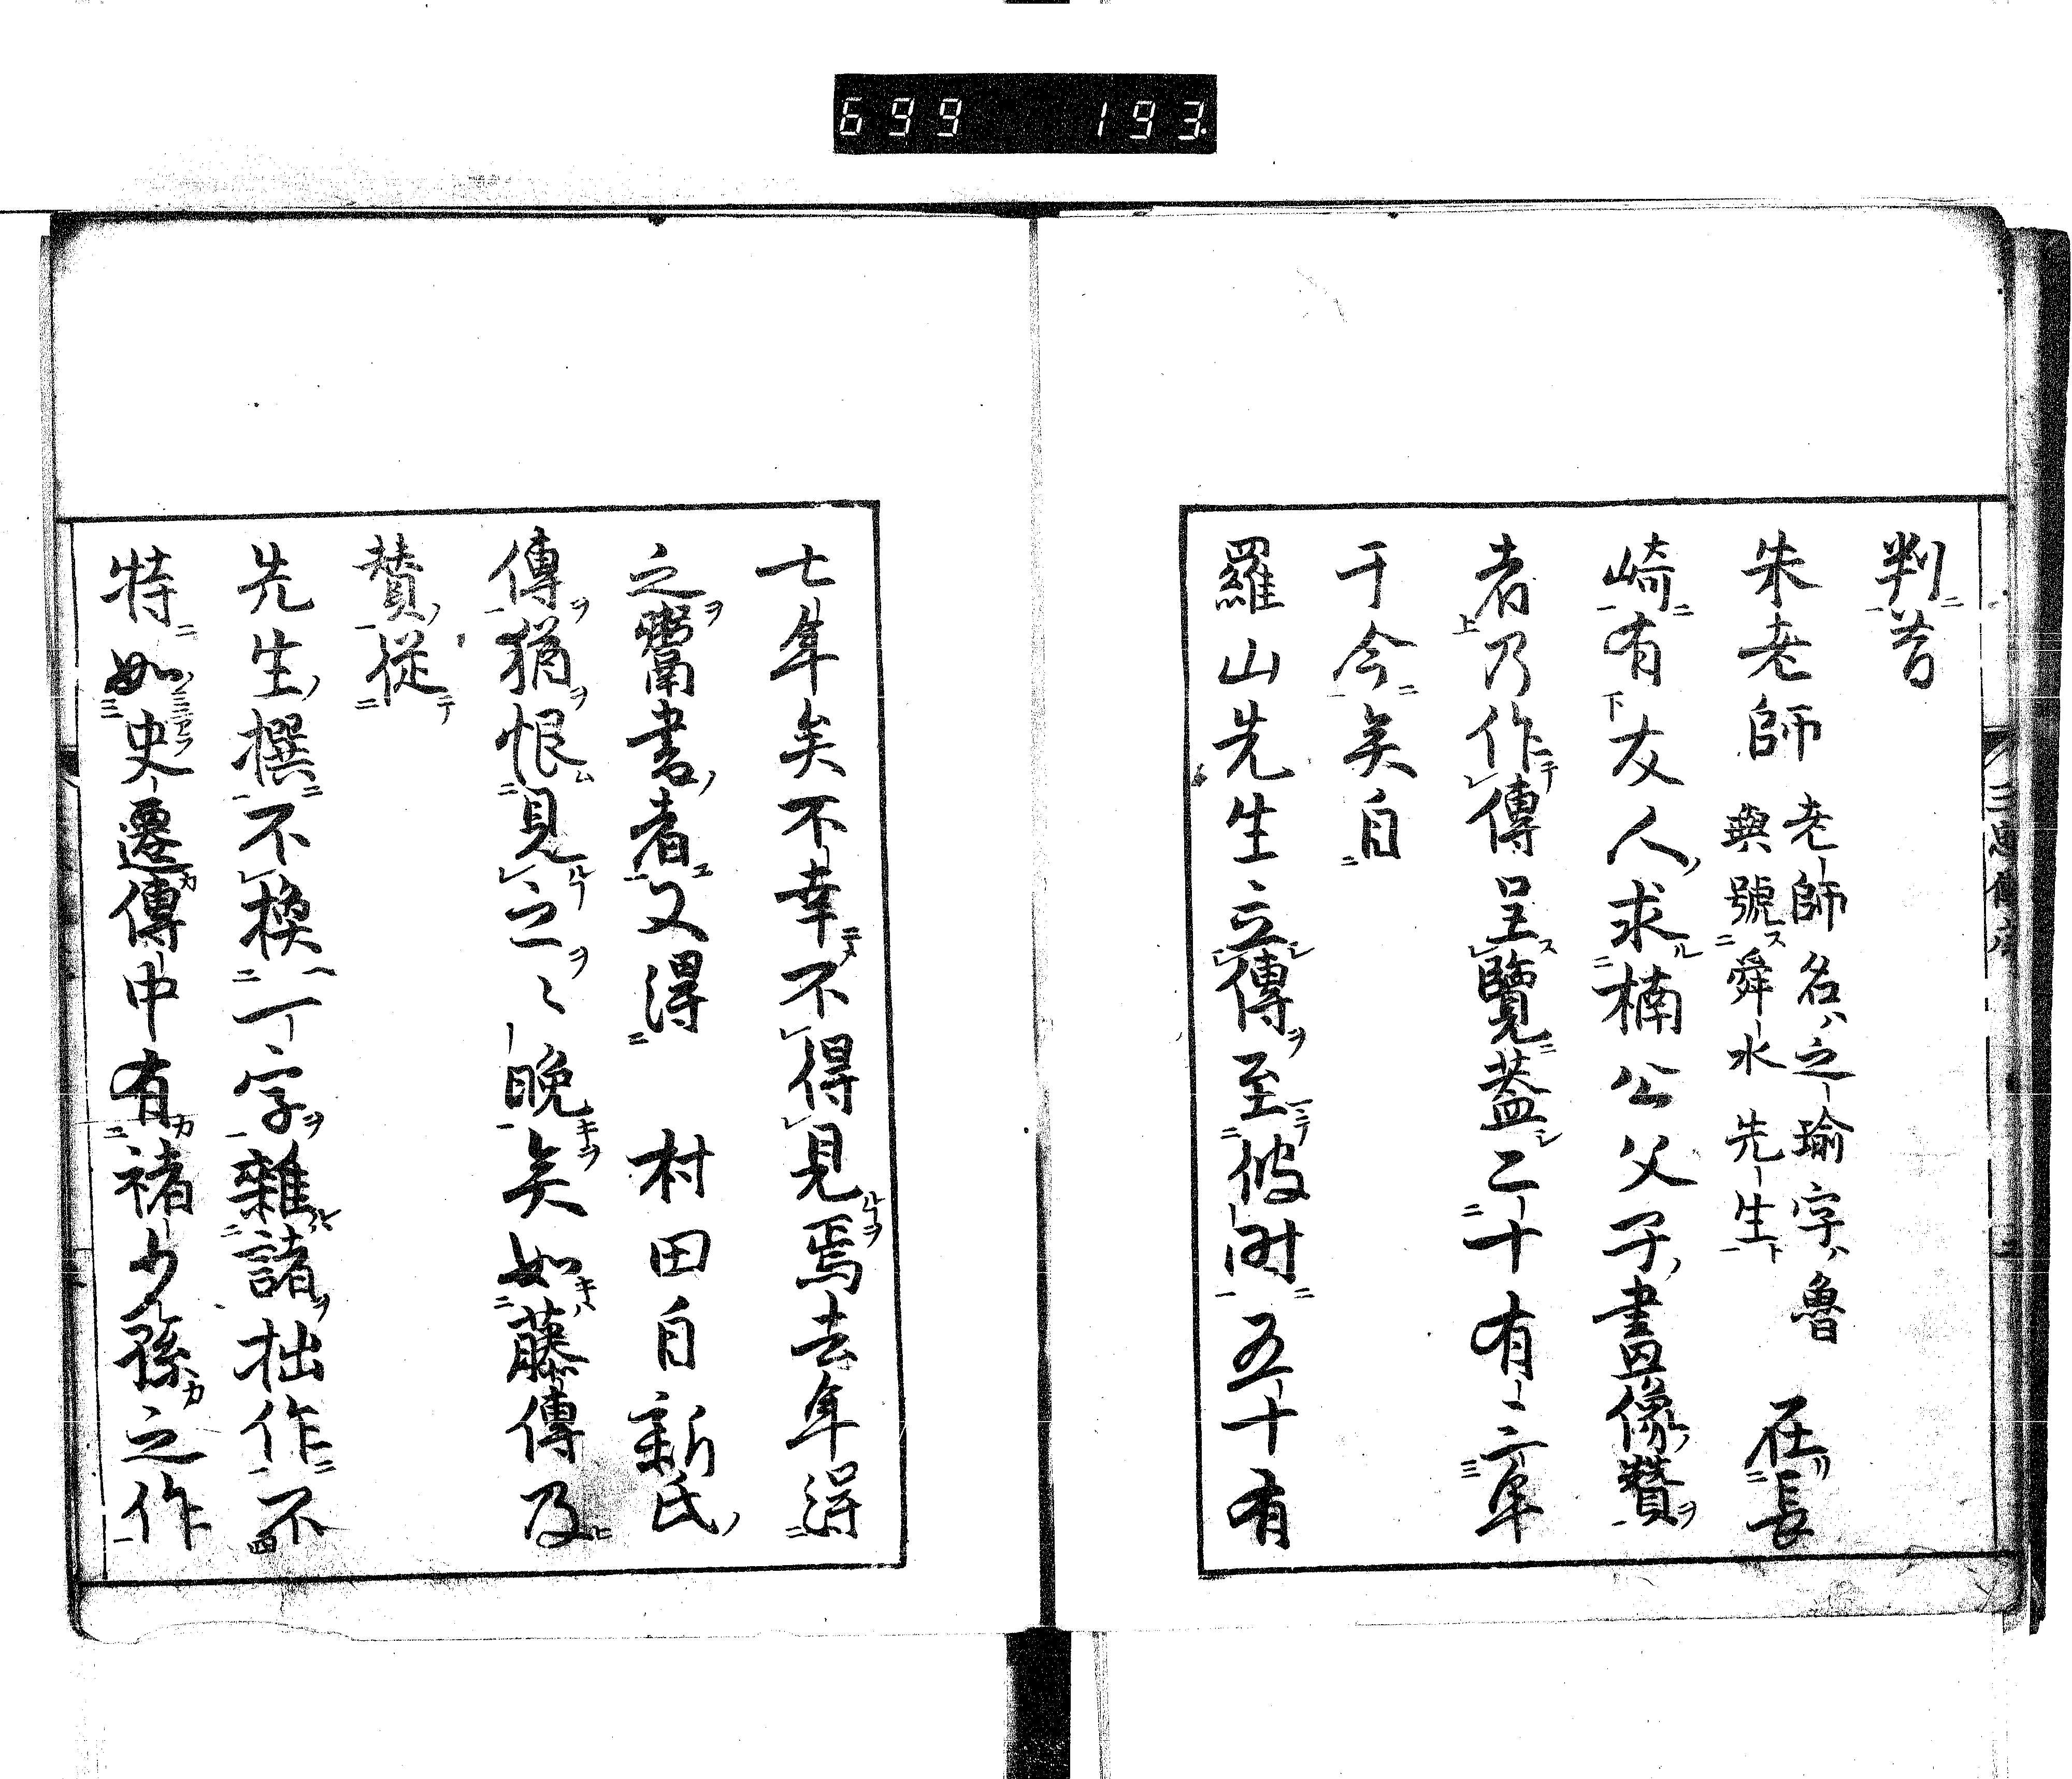 699 193
判昔
朱老師 老師名之瑜字魯
與號舜水先生 在長
崎有友人求楠公父子畫像贊
者乃作傳呈覽蓋二十有二年
于今矣自
羅山先生立傳至彼时五十有
七年矣不幸不得見焉去年得
之鬻書者又得 村田自新氏
傳猶恨見之〻晩矣如藤傳及
贊從
先生撰不換一字雜諸拙作不
特如史遷傳中有褚少孫之作